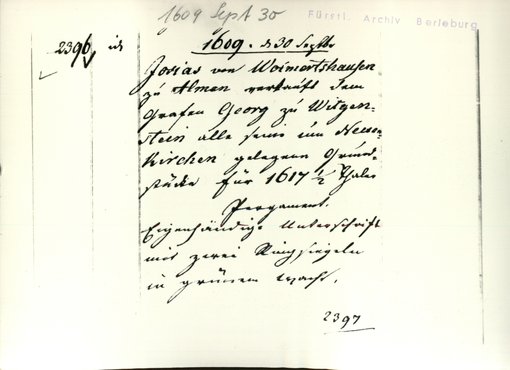 1609 Sept 30
Fürstl. Archiv Berleburg
2396
1609. d 30 Septbr
Josias von Woimertshausen
zu Almen verkauft dem
Grafen Georg zu Witgen-
stein alle seine im Neuen-
Kirchen gelegenen Grund-
stücke für 1617 1/2 Thaler
Pergament.
Eigenhändige Unterschrift
mit zwei Ringsiegeln
in grünem Wachs.
2397